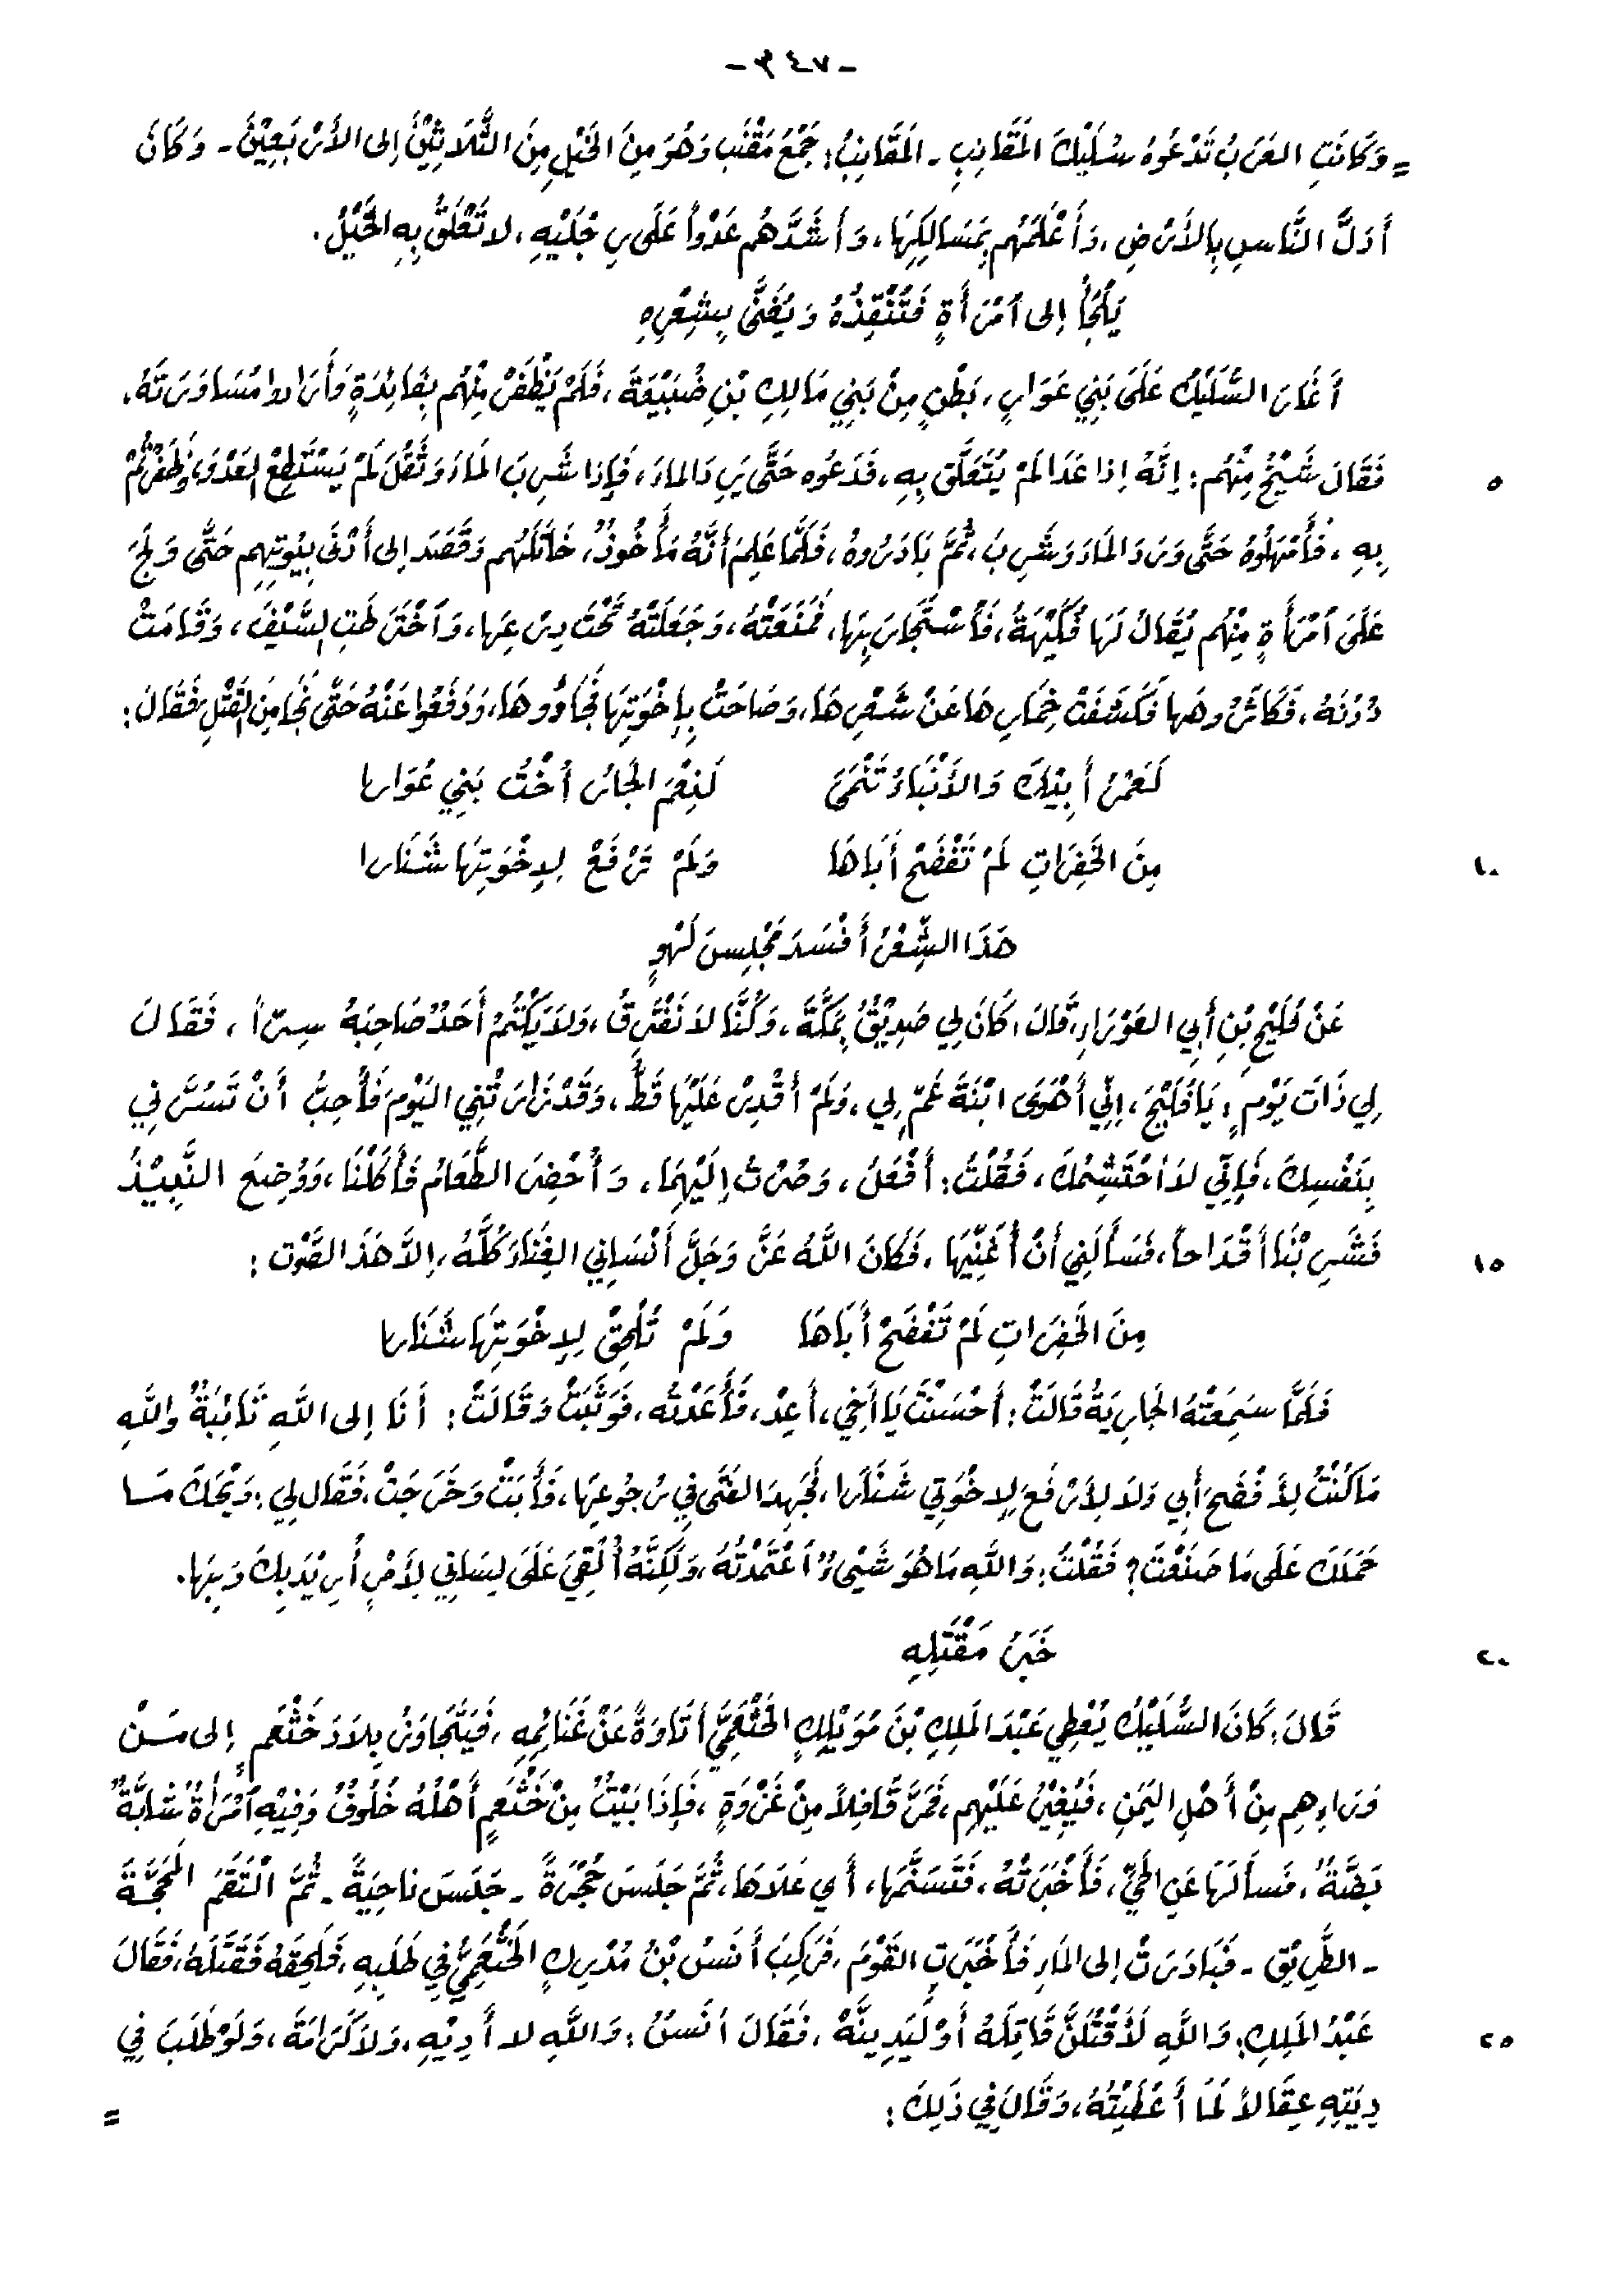 - ٣٤٧ -
= وَكَانَتِ العَرَبُ تَدْعُوهُ سُلَيْكَ المَقَانِبِ - المَقَانِبُ: جَمْعُ مِقْنَبٍ وَهُوَ مِنَ الخَيْلِ مِنَ الثَّلَاثِيْنَ إلى الأَرْبَعِيْنَ - وَكَانَ
أَدَلَّ النَّاسِ بِالأَرْضِ، وَأَعْلَمَهُم بِمَسَالِكِهَا، وَأَشَدَّهُم عَدْواً عَلَى رِجْلَيْهِ، لا تَعْلَقُ بِهِ الخَيْلُ.
يَلْجَأُ إلى اَمْرَأَةٍ فَتُنْقِذُهُ وَيُغَنَّى بِشِعْرِهِ
أَغَارَ السُّلَيْكُ عَلَى بَنِي عَوَارٍ، بَطْنٍ مِنْ بَنِي مَالِكِ بْنِ ضُبَيْعَةَ، فَلَمْ يَظْفَرْ مِنْهُم بِفَائِدَةٍ وَأَرَادوا مُسَاوَرَتَهُ،
٥ فَقَالَ شَيْخٌ مِنْهُم: إنَّهُ إذا عَدَا لَمْ يُتَعَلَّق بِهِ، فَدَعُوه حَتَّى يَرِدَ الماءَ، فَإِذا شَرِبَ المَاءَ وَثَقُلَ لَمْ يَسْتَطِعْ العَدْوَ، وَظَفِرْتُمْ
بِهِ، فَأَمْهَلُوهُ حَتَّى وَرَدَ المَاءَ وَشَرِبَ، ثُمَّ بَادَرُوهُ، فَلَمَّا عَلِمَ أَنَّهُ مَأْخُوذٌ، خَاتَلَهُم وَقَصَدَ إلى أَدْنَى بِيُوتِهِم حَتَّى وَلَجَ
عَلَى اَمْرَأَةٍ مِنْهُم يُقَالُ لَهَا فُكَيْهَةُ، فَاسْتَجَارَ بِهَا، فَمَنَعَتْهُ، وَجَعَلَتْهُ تَحْتَ دِرْعِهَا، وَاَخْتَرَطَتِ السَّيْفَ، وَقَامَتْ
دُوْنَهُ، فَكَاثَرُوهَا فَكَشَفَتْ خِمَارِهَا عَنْ شَعْرِهَا، وَصَاحَتْ بِإِخْوَتِهَا فَجَاؤُوهَا، وَدَفَعُوا عَنْهُ حَتَّى نَجَا مِنَ القَتْلِ فَقَالَ:
لَعَمْرُ أَبِيْكَ وَالأَنْبَاءُ تَنْمَى لَنِعْمَ الجَارُ أُخْتُ بَنِي عُوَارا
١٠ مِنَ الخَفِرَاتِ لَمْ تَفْضَحْ أَبَاهَا وَلَمْ تَرْفَعْ لِإِخْوَتِهَا شَنَارا
هَذَا الشِّعْرُ أَفْسَدَ مَجْلِسَ لَهْوٍ
عَنْ فُلَيْحِ بْنِ أَبِي العَوْرَاءِ، قَالَ: كَانَ لِي صَدِيْقٌ بِمَكَّةَ، وَكُنَّا لَا نَفْتَرِقُ، وَلَا يَكْتُمُ أَحَدٌ صَاحِبَهُ سِرّاً، فَقَالَ
لِي ذَاتَ يَوْمٍ: يَا فُلَيْحُ، إِنِّي أَهْوَى ابْنَةَ عَمٍّ لِي، وَلَمْ أَقْدِرْ عَلَيْهَا قَطُّ، وَقَدْ زَارَتْنِي اليَوْمَ فَأُحِبُّ أَنْ تَسُرَّنِي
بِنَفْسِكَ، فَإِنِّي لَا اَحْتَشِمُكَ، فَقُلْتُ: أَفْعَلُ، وَصِرْتُ إِلَيْهِمَا، وَأُحْضِرَ الطَّعَامُ فَأَكَلْنَا، وَوُضِعَ النَّبِيْذُ
١٥ فَشَرِبْنَا أَقْدَاحاً، فَسَأَلَنِي أَنْ أُغَنِّيَهَا، فَكَانَ اللَّهُ عَزَّ وَجَلَّ أَنْسَانِي الغِنَاءَ كُلَّهُ، إلاَّ هَذَ الصَّوْت:
مِنَ الخَفِرَاتِ لَمْ تَفْضَحْ أَبَاهَا وَلَمْ تُلْحِقْ لِإِخْوَتِهَا شَنَارا
فَلَمَّا سَمِعَتْهُ الجَارِيَةُ قَالَتْ: أَحْسَنْتَ يَا أَخِي، أَعِدْ، فَأَعَدْتُه، فَوَثَبَتْ وَقَالَتْ: أَنَا إلى اللَّهِ تَائِبَةٌ وَاللَّهِ
مَا كُنْتُ لِأَفْضَحَ أَبِي وَلَا لِأَرْفَعَ لِإِخْوَتِي شَنَارا، فَجَهِدَ الفَتَى فِي رُجُوعِهَا، فَأَبَتْ وَخَرَجَتْ، فَقَال لِي: وَيْحَكَ مَا
حَمَلَكَ عَلَى مَا صَنَعْتَ؟ فَقُلْتُ: وَاللَّهِ مَا هُوَ شَيْىءٌ اَعْتَمَدْتُهُ، وَلَكِنَّهُ أُلْقِيَ عَلَى لِسَانِي لِأَمْرٍ أُرِيْدَ بِكَ وَبِهَا.
٢٠ خَبَرُ مَقْتَلِهِ
قَالَ: كَانَ السُّلَيْكُ يُعْطِي عَبْدَ المَلِكِ بْنَ مُوَيْلِكٍ الخَثْعَمِيَّ أتَاوَةً عَنْ غَنَائِمِهِ، فَيَتَجَاوَزُ بِلاَدَ خَثْعَمٍ إلى مَنْ
وَرَاءِهِم مِنْ أَهْلِ اليَمَنِ، فَيُغِيْرُ عَلَيْهِم، فَمَرَّ قَافِلاً مِنْ غَزْوَةٍ، فَإِذَا بَيْتٌ مِنْ خَثْعَمٍ أَهْلُهُ خُلُوفٌ وَفِيْهِ اَمْرَأَةٌ شَابَّةٌ
بَضَّةٌ، فَسَأَلَهَا عَنِ الحَيِّ، فَأَخْبَرَتْهُ، فَتَسَنَّمَهَا، أَي عَلَاهَا، ثُمَّ جَلَسَ حُجْرَةً - جَلَسَ ناحِيَةً - ثُمَّ الْتَقَمَ المَحَجَّةَ
- الطَّرِيْق - فَبَادَرَتْ إلى المَاءِ فَأَخْبَرَتِ القَوْمَ، فَرَكِبَ أَنَسُ بْنُ مُدْرِكٍ الخَثْعَمِيُّ فِي طَلَبِهِ، فَلَحِقَهُ فَقَتَلَهُ، فَقَالَ
٢٥ عَبْدُ المَلِكِ: وَاللَّهِ لَأَقْتُلَنَّ قَاتِلَهُ أَوْ لَيَدِيَنَّهُ، فَقَالَ أنَسُ: وَاللَّهِ لا أَدِيْهِ، وَلاَ كَرَامَةَ، وَلَوْ طَلَبَ فِي
دِيَتِهِ عِقَالاً لَمَا أَعْطَيْتُهُ، وَقَالَ فِي ذَلِكَ: =